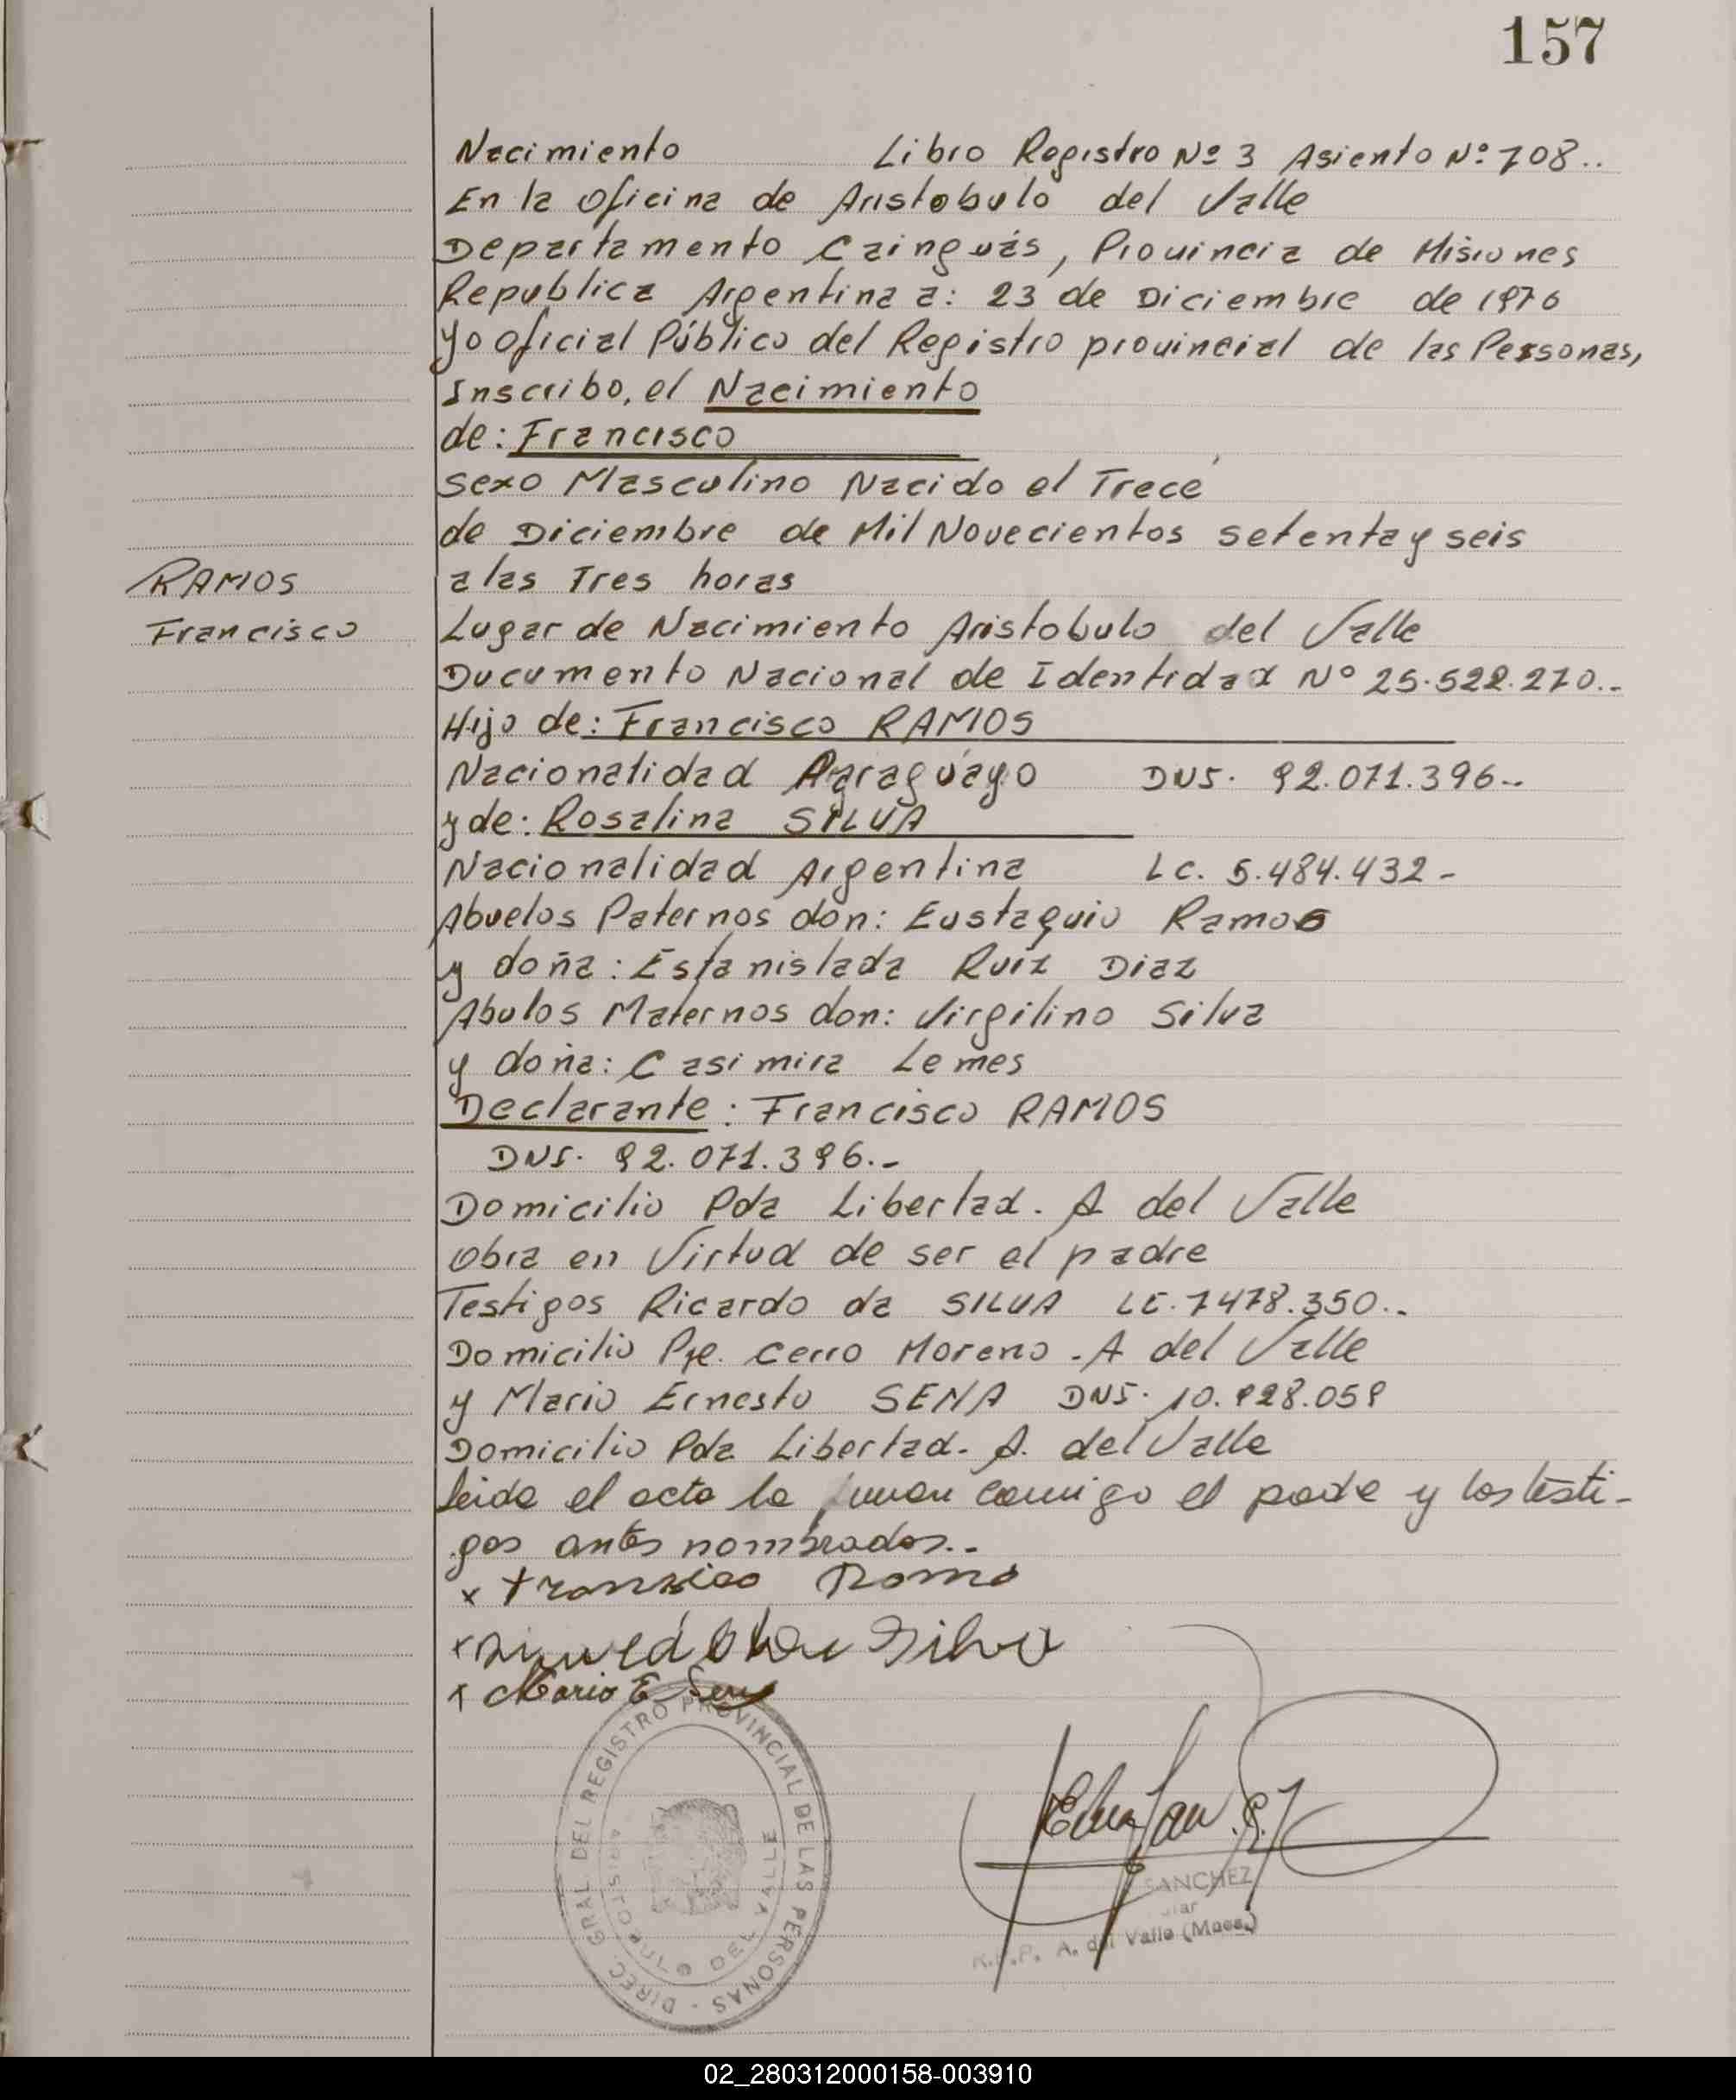 157
Nacimiento Libro Registro Nº 3 Asiento Nº 708..
En la oficina de Aristobulo del Valle
Departamento Cainguás, Provincia de Misiones
Republica Argentina a: 23 de Diciembre de 1976
yo oficial Público del Registro provincial de las Personas,
Inscribo, el Nacimiento
de: Francisco
sexo Masculino Nacido el Trece
de Diciembre de Mil Novecientos setenta y seis
RAMOS
Francisco
a las Tres horas
Lugar de Nacimiento Aristobulo del Valle
Documento Nacional de Identidad Nº 25.522.270.-
Hijo de: Francisco RAMOS
Nacionalidad Paraguayo DNI. 92.071.396--
y de: Rosalina SILVA
Nacionalidad Argentina LC. 5.484.432-
Abuelos Paternos don: Eustaquio Ramos
y doña: Estanislada Ruíz Diaz
Abulos Maternos don: Virgilino Silva
y doña: Casimira Lemes
Declarante: Francisco RAMOS
DNI. 92.071.396.-
Domicilio Pda Libertad. A del Valle
Obra en Virtud de ser el padre
Testigos Ricardo da SILVA LE. 7478.350..
Domicilio Pje. Cerro Moreno - A del Valle
y Mario Ernesto SENA DNI. 10.928.059
Domicilio Pda Libertad. A. del Valle
leida el acta la firman conmigo el padre y los testi-
gos antes nombrados..
x Francisco Ramo
x Silva
x Mario E. Sena
DIREC. GRAL DEL REGISTRO PROVINCIAL DE LAS PERSONAS -
ARISTOBULO DEL VALLE
SANCHEZ
A. del Valle (Mnes.)
02_280312000158-003910